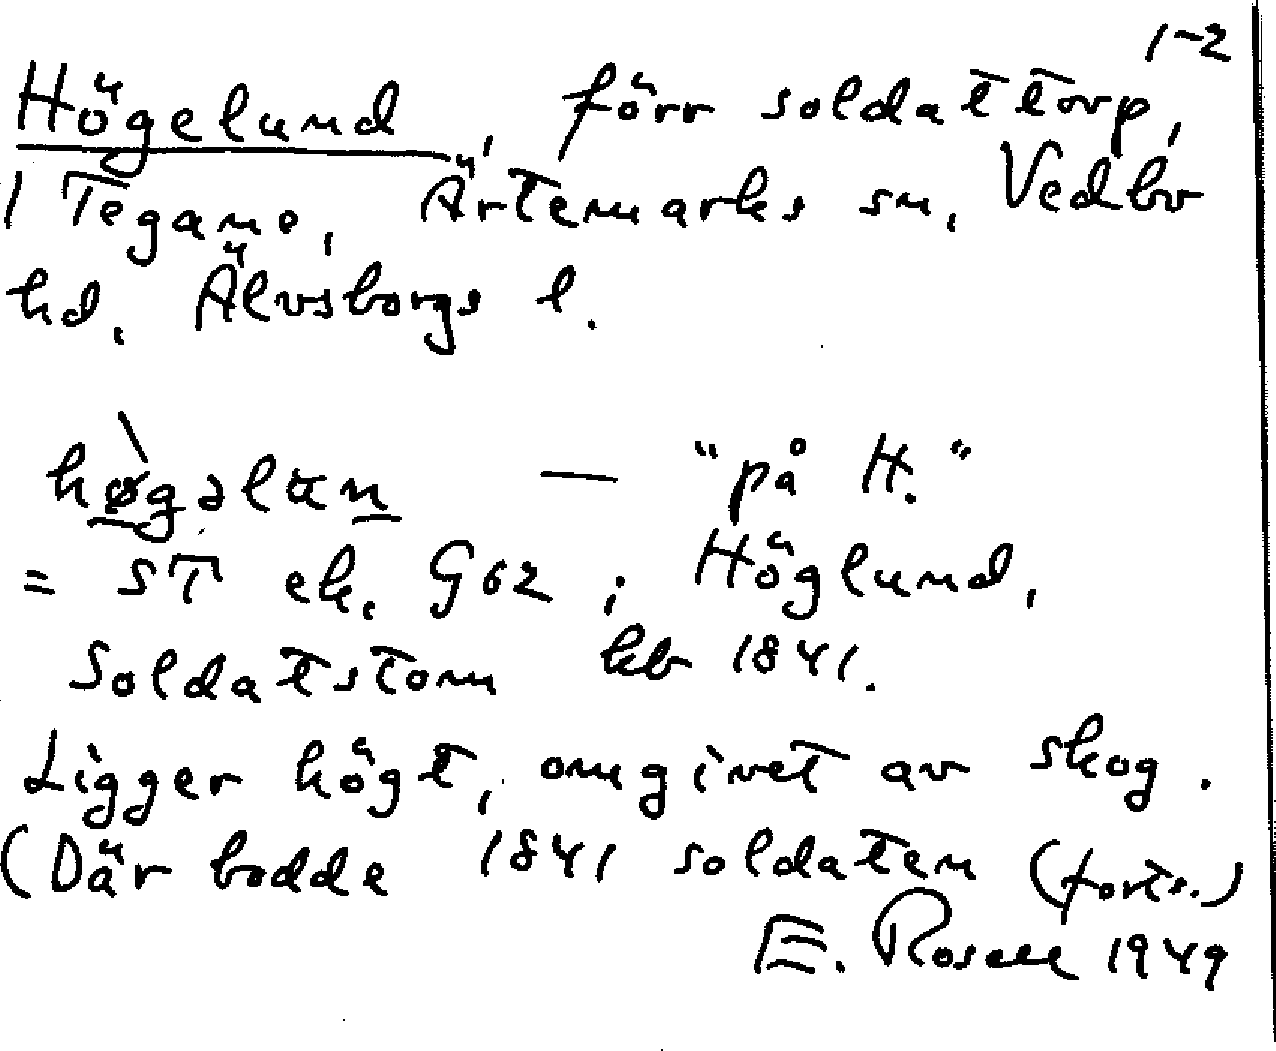 1-2
Högelund, förr soldattorp,
i Tegane, Ärtemarks sn, Vedbo
hd, Älvsborgs l.
hø̀gəlun — "på H."
= ST ek. G62; Höglund,
Soldatstom hb 1841.
Ligger högt, omgivet av skog.
(Där bodde 1841 soldaten (forts.)
E. Rosell 1949